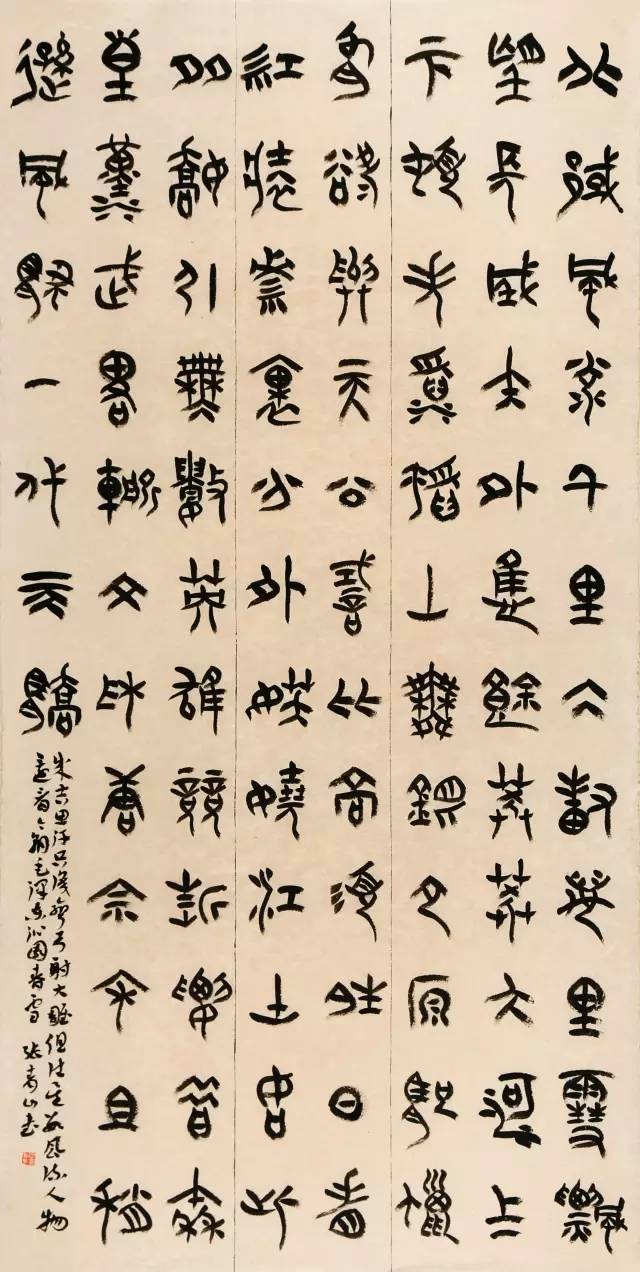 北國風光千里冰封萬里雪飄
望長城内外惟餘莽莽大河上
下頓失滔滔山舞銀蛇原馳蠟
象欲與天公試比高須晴日看
紅裝素裹分外妖嬈江山如此
多嬌引無數英雄競折腰惜秦
皇漢武略輸文采唐宗宋祖稍
遜風騷一代天驕
成吉思汗只識彎弓射大雕俱往矣數風流人物
還看今朝毛澤東沁園春雪 張青山書